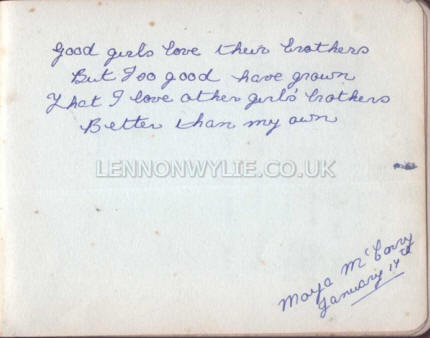 Good girls love their brothers
But I so good have grown
That I love other girls' brothers
Better than my own
LENNONWYLIE.CO.UK
Moya McCorry
January 14th